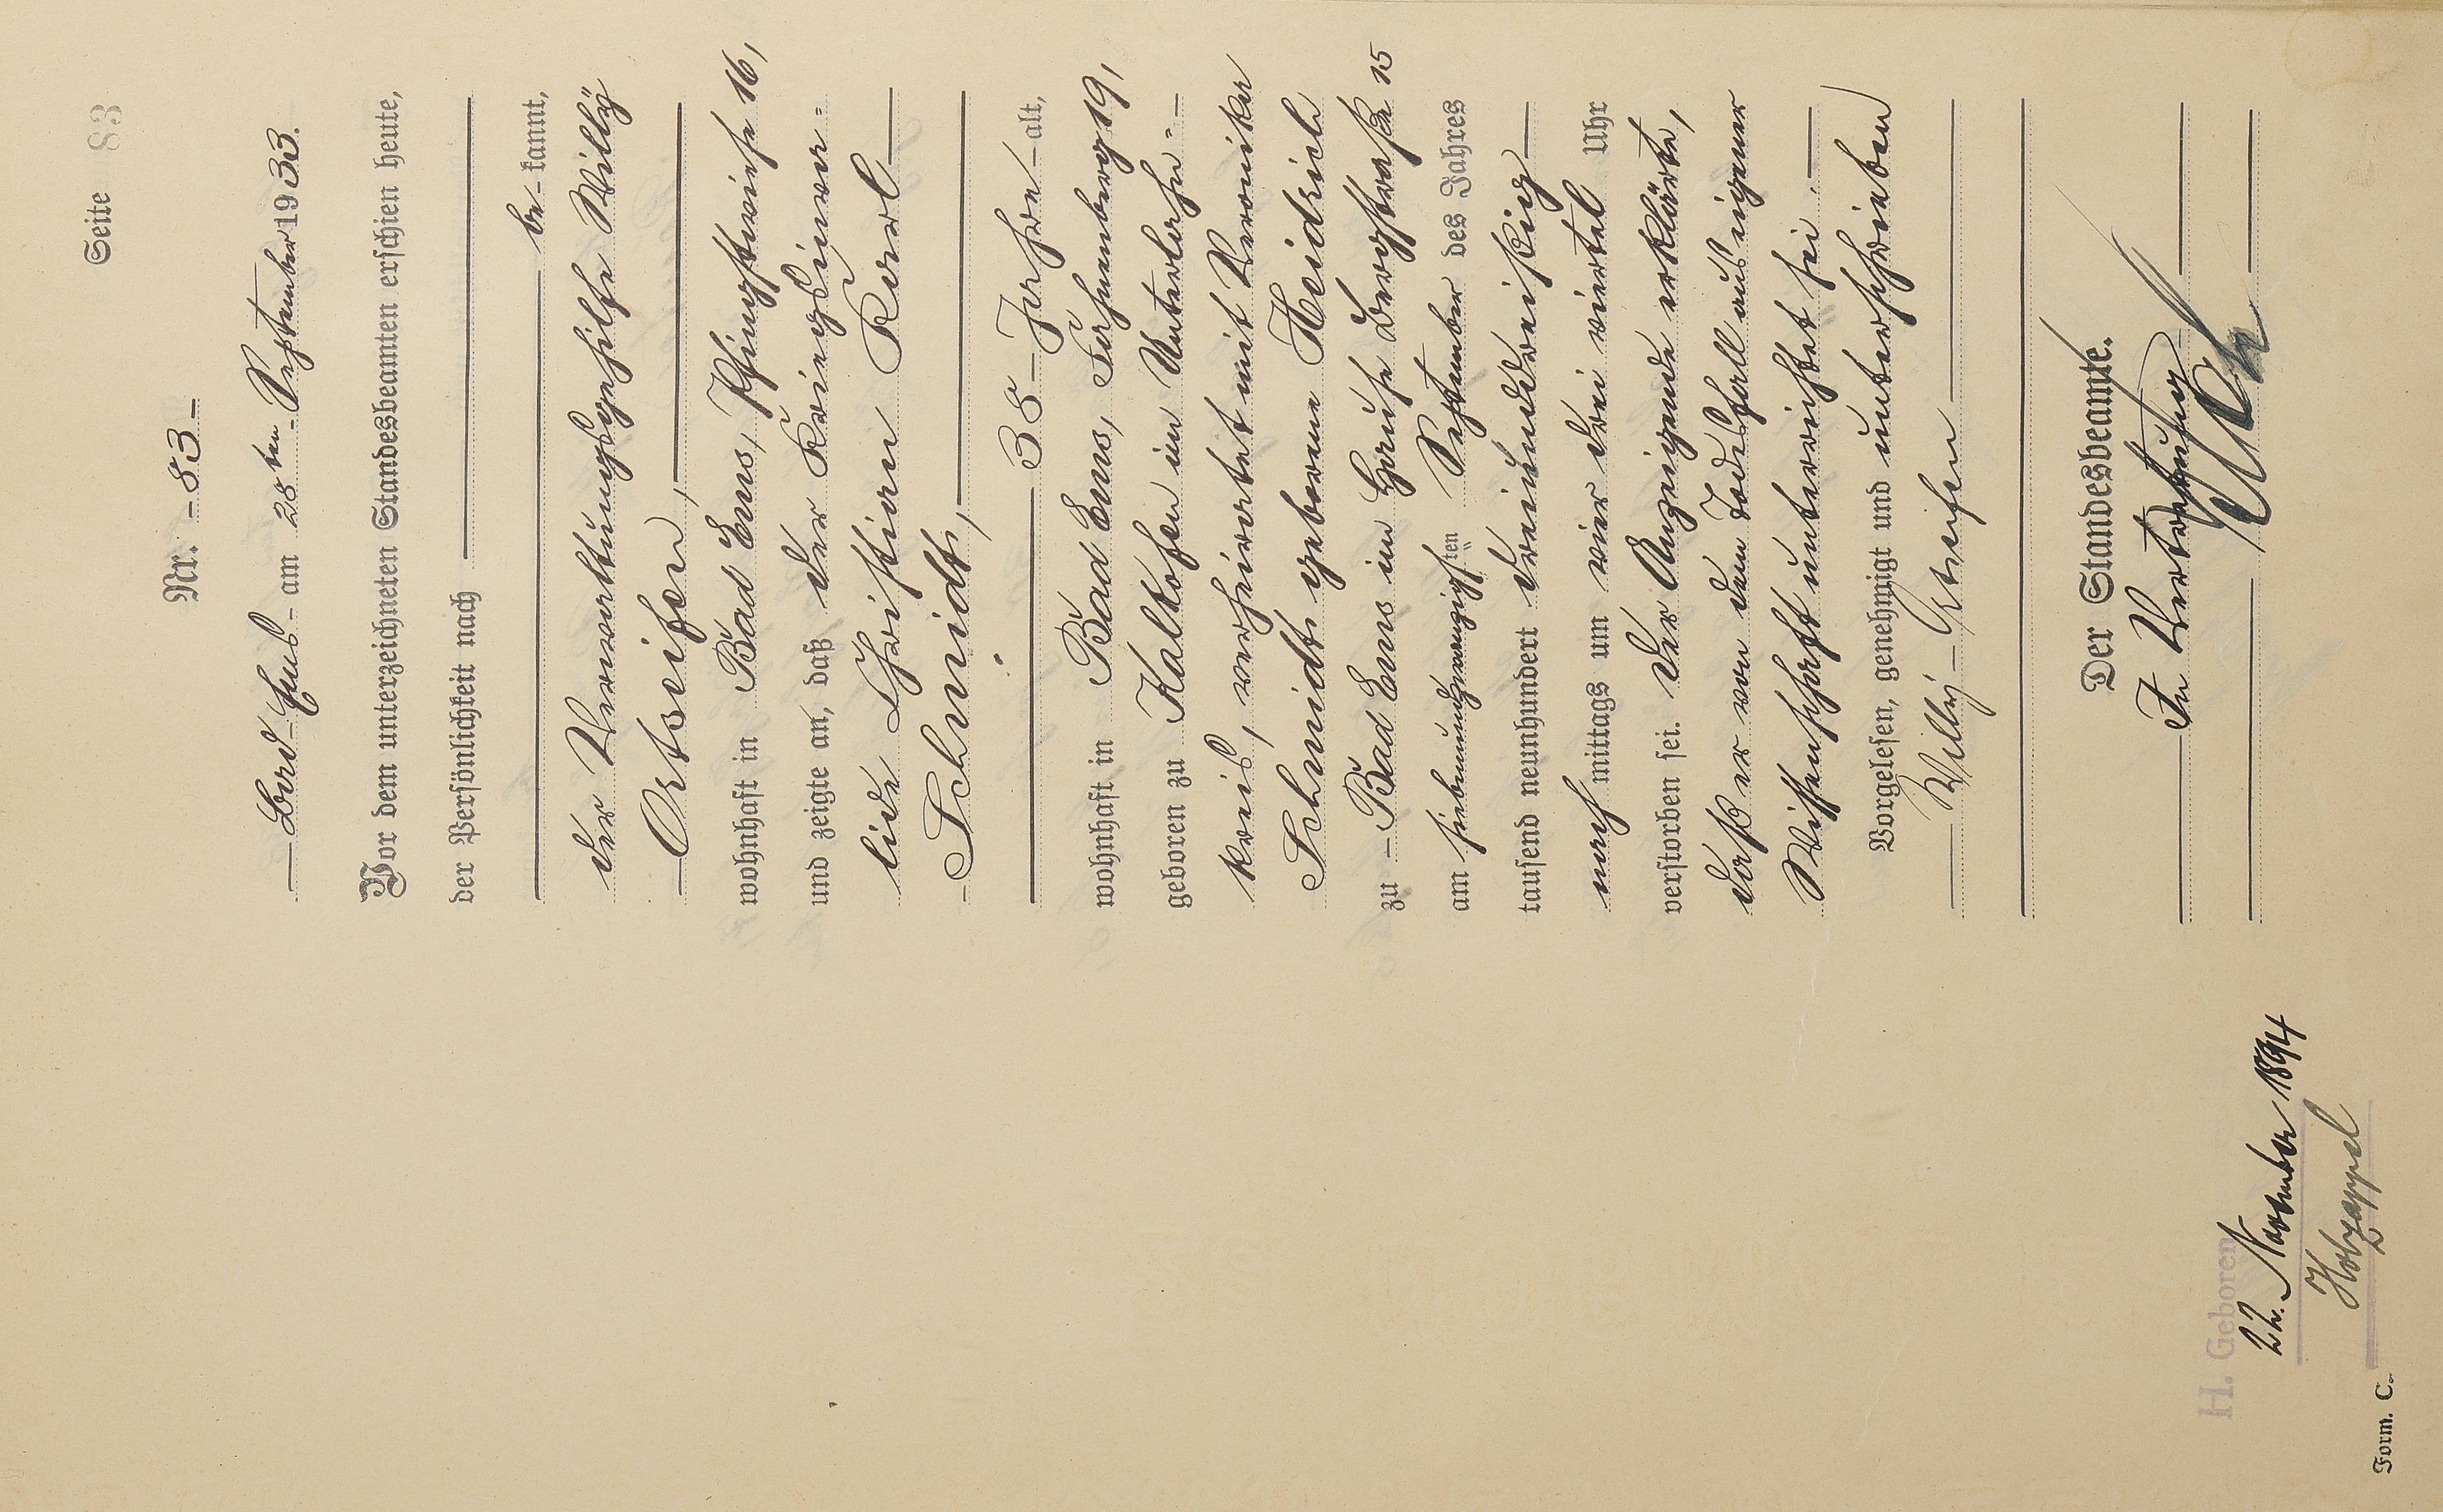 Seite 83
Nr. - 83 -
Bad Ems - am 28ten September 1933.
Vor dem unterzeichneten Standesbeamten erschien heute,
der Persönlichkeit nach
be - kannt,
der Verwaltungsgehilfe Willÿ
Ortseifen,
wohnhaft in Bad Ems, Pfingstwiese 16,
und zeigte an, daß der Kriegsinva-
lide Christian Karl
- Schmidt,
38 - Jahre - alt,
wohnhaft in Bad Ems, Fachenberg 19,
geboren zu Kalkofen im Unterlahn-
kreis, verheiratet mit Veronika
Schmidt geborene Heidrich
zu - Bad Ems im Hause Bergstraße 15
am siebenundzwanzigsten September des Jahres
tausend neunhundert dreiunddreißig
nach mittags um vier drei viertel Uhr
verstorben sei. Der Anzeigende erklärte,
daß er von dem Todesfall aus eigener
Wissenschaft unterrichtet sei. -
Vorgelesen, genehmigt und unterschrieben
Willÿ Ortseifen
Der Standesbeamte.
In Vertretung
H. Geboren
22. November 1894
Holzappel
Form. C.